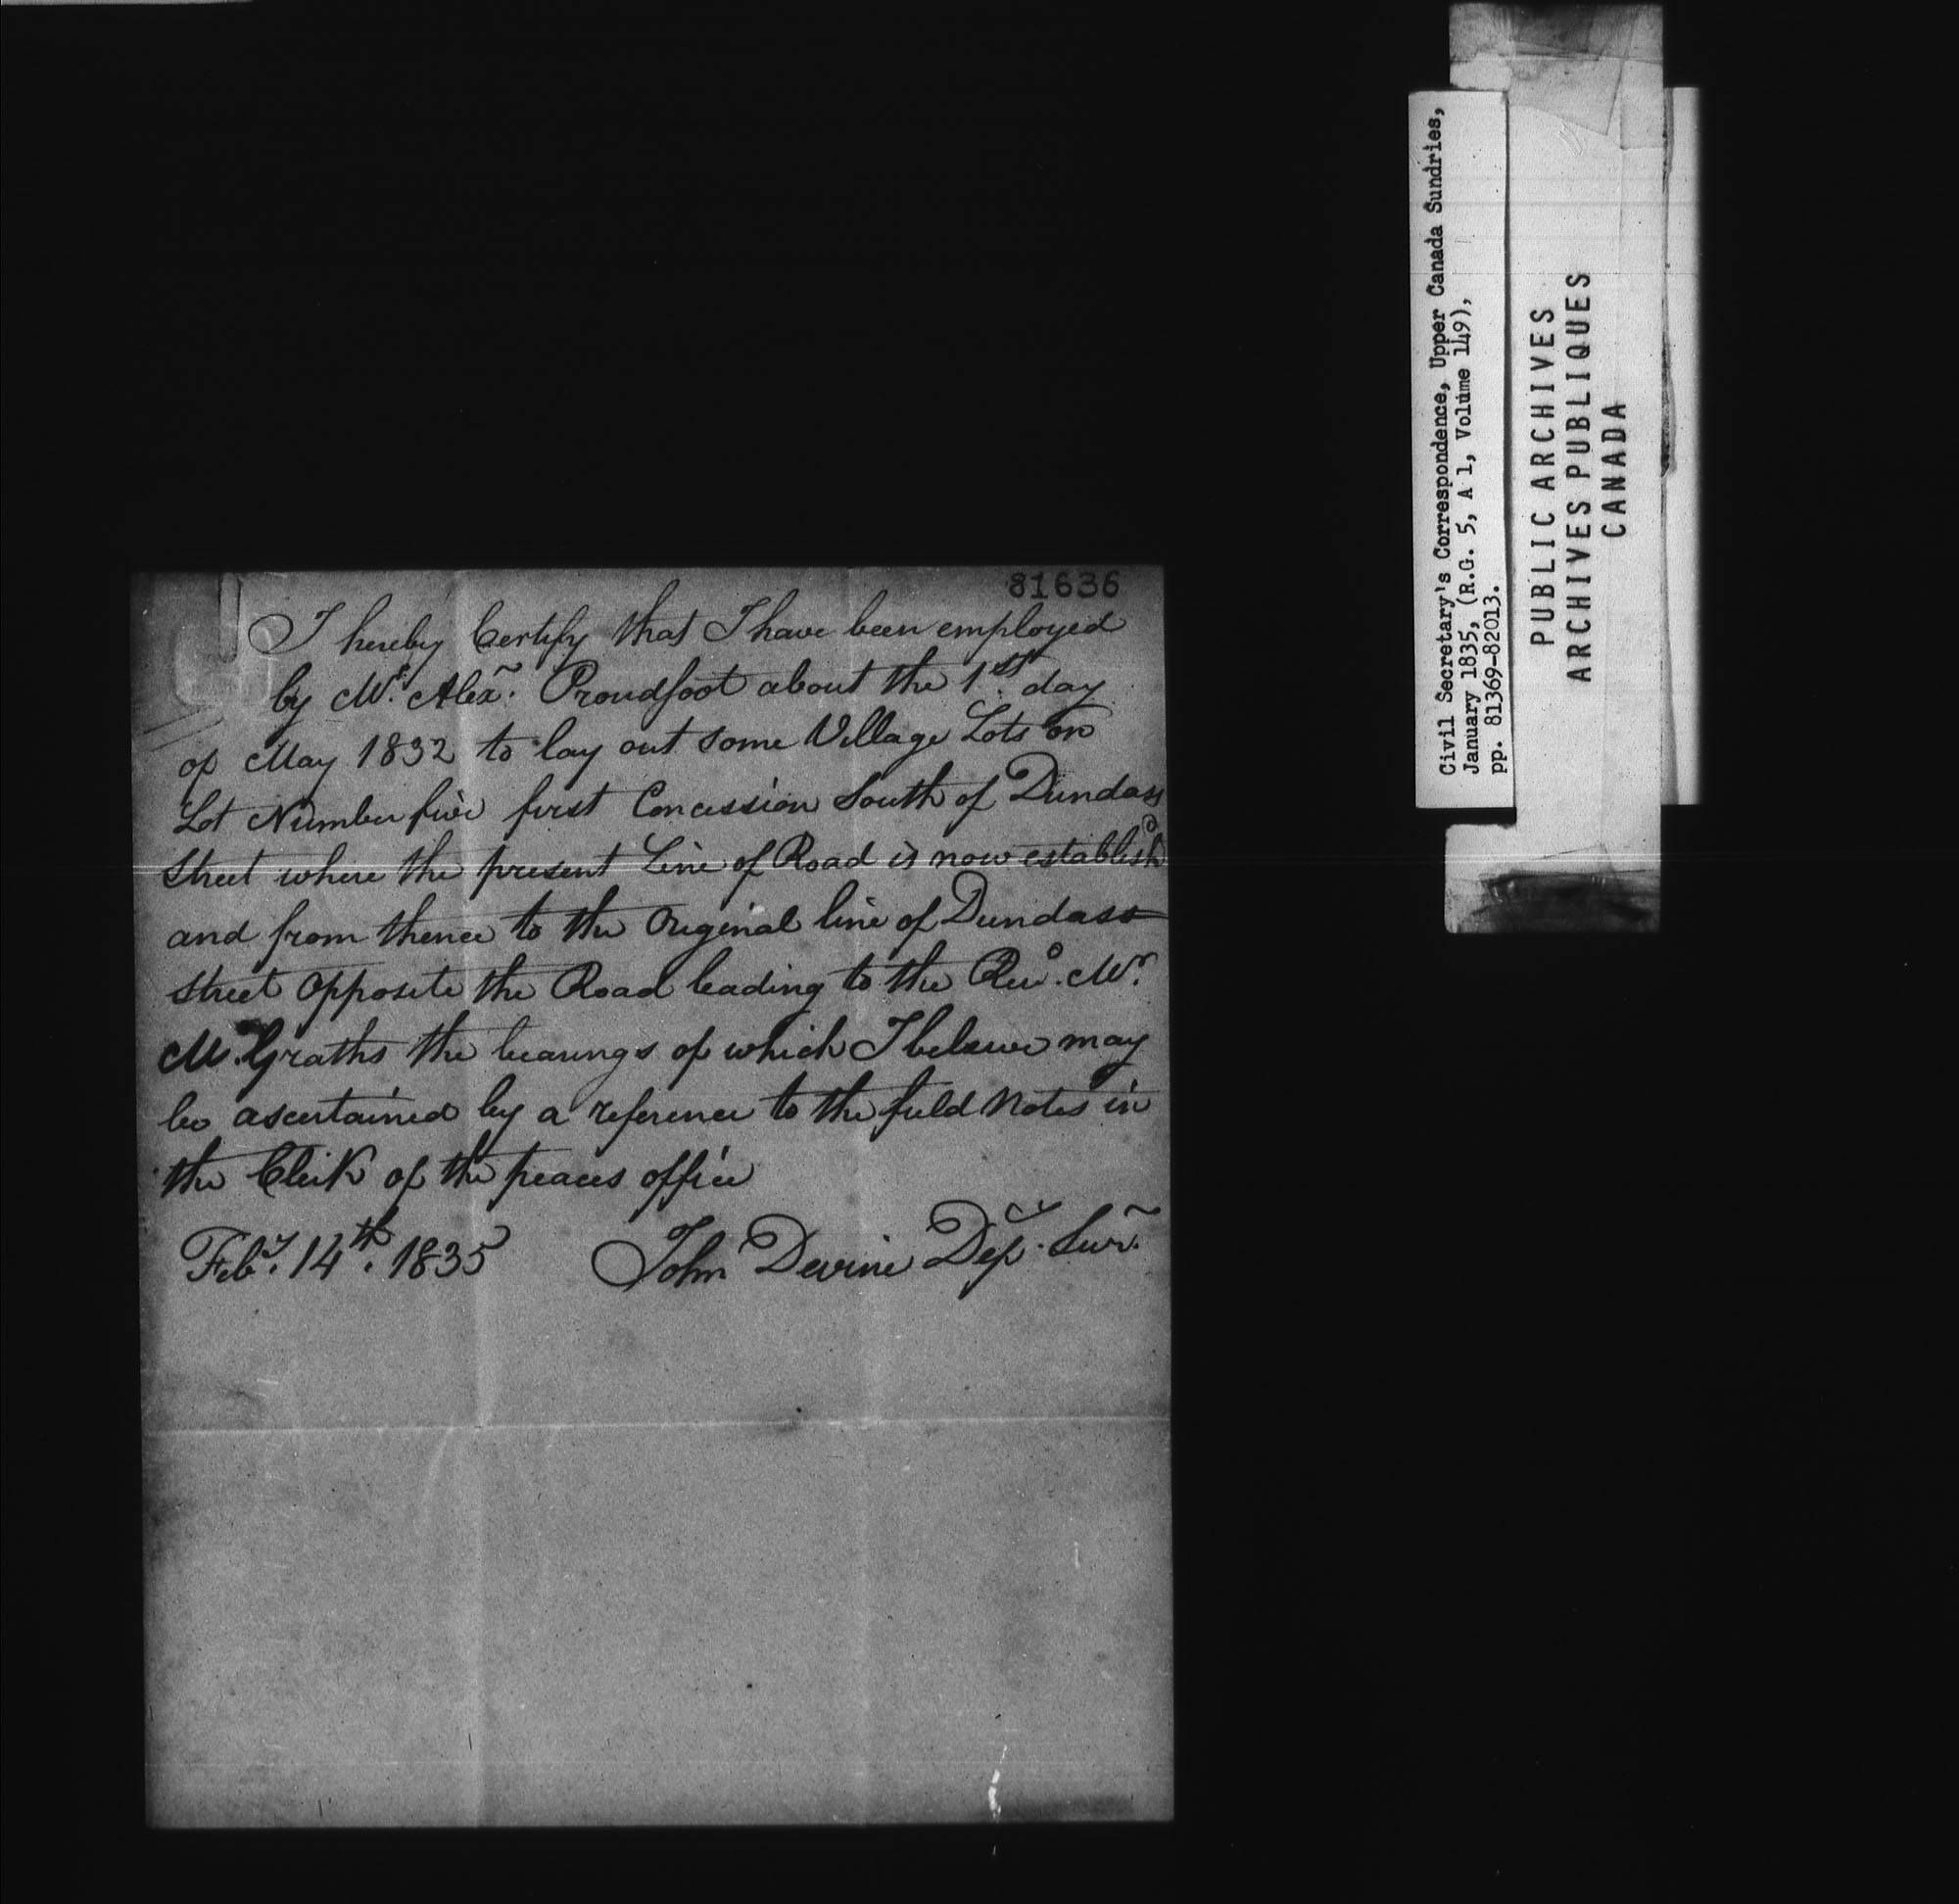 81636
I hereby Certify that I have been employed
by Mr. Alexr. Proudfoot about the 1st. day
of May 1832 to lay out some Village Lots on
Lot Number five first Concession South of Dundass
Street where the present Line of Road is now establishd
and from thence to the Original line of Dundass
Street Opposite the Road leading to the Revd. Mr.
McGraths the bearings of which I beleive may
be ascertained by a reference to the field Notes in
the Clerk of the peaces office
Feby. 14th. 1835 John Devine Depy. Surr.
Civil Secretary's Correspondence, Upper Canada Sundries,
January 1835, (R.G. 5, A 1, Volume 149),
pp. 81369-82013.
PUBLIC ARCHIVES
ARCHIVES PUBLIQUES
CANADA